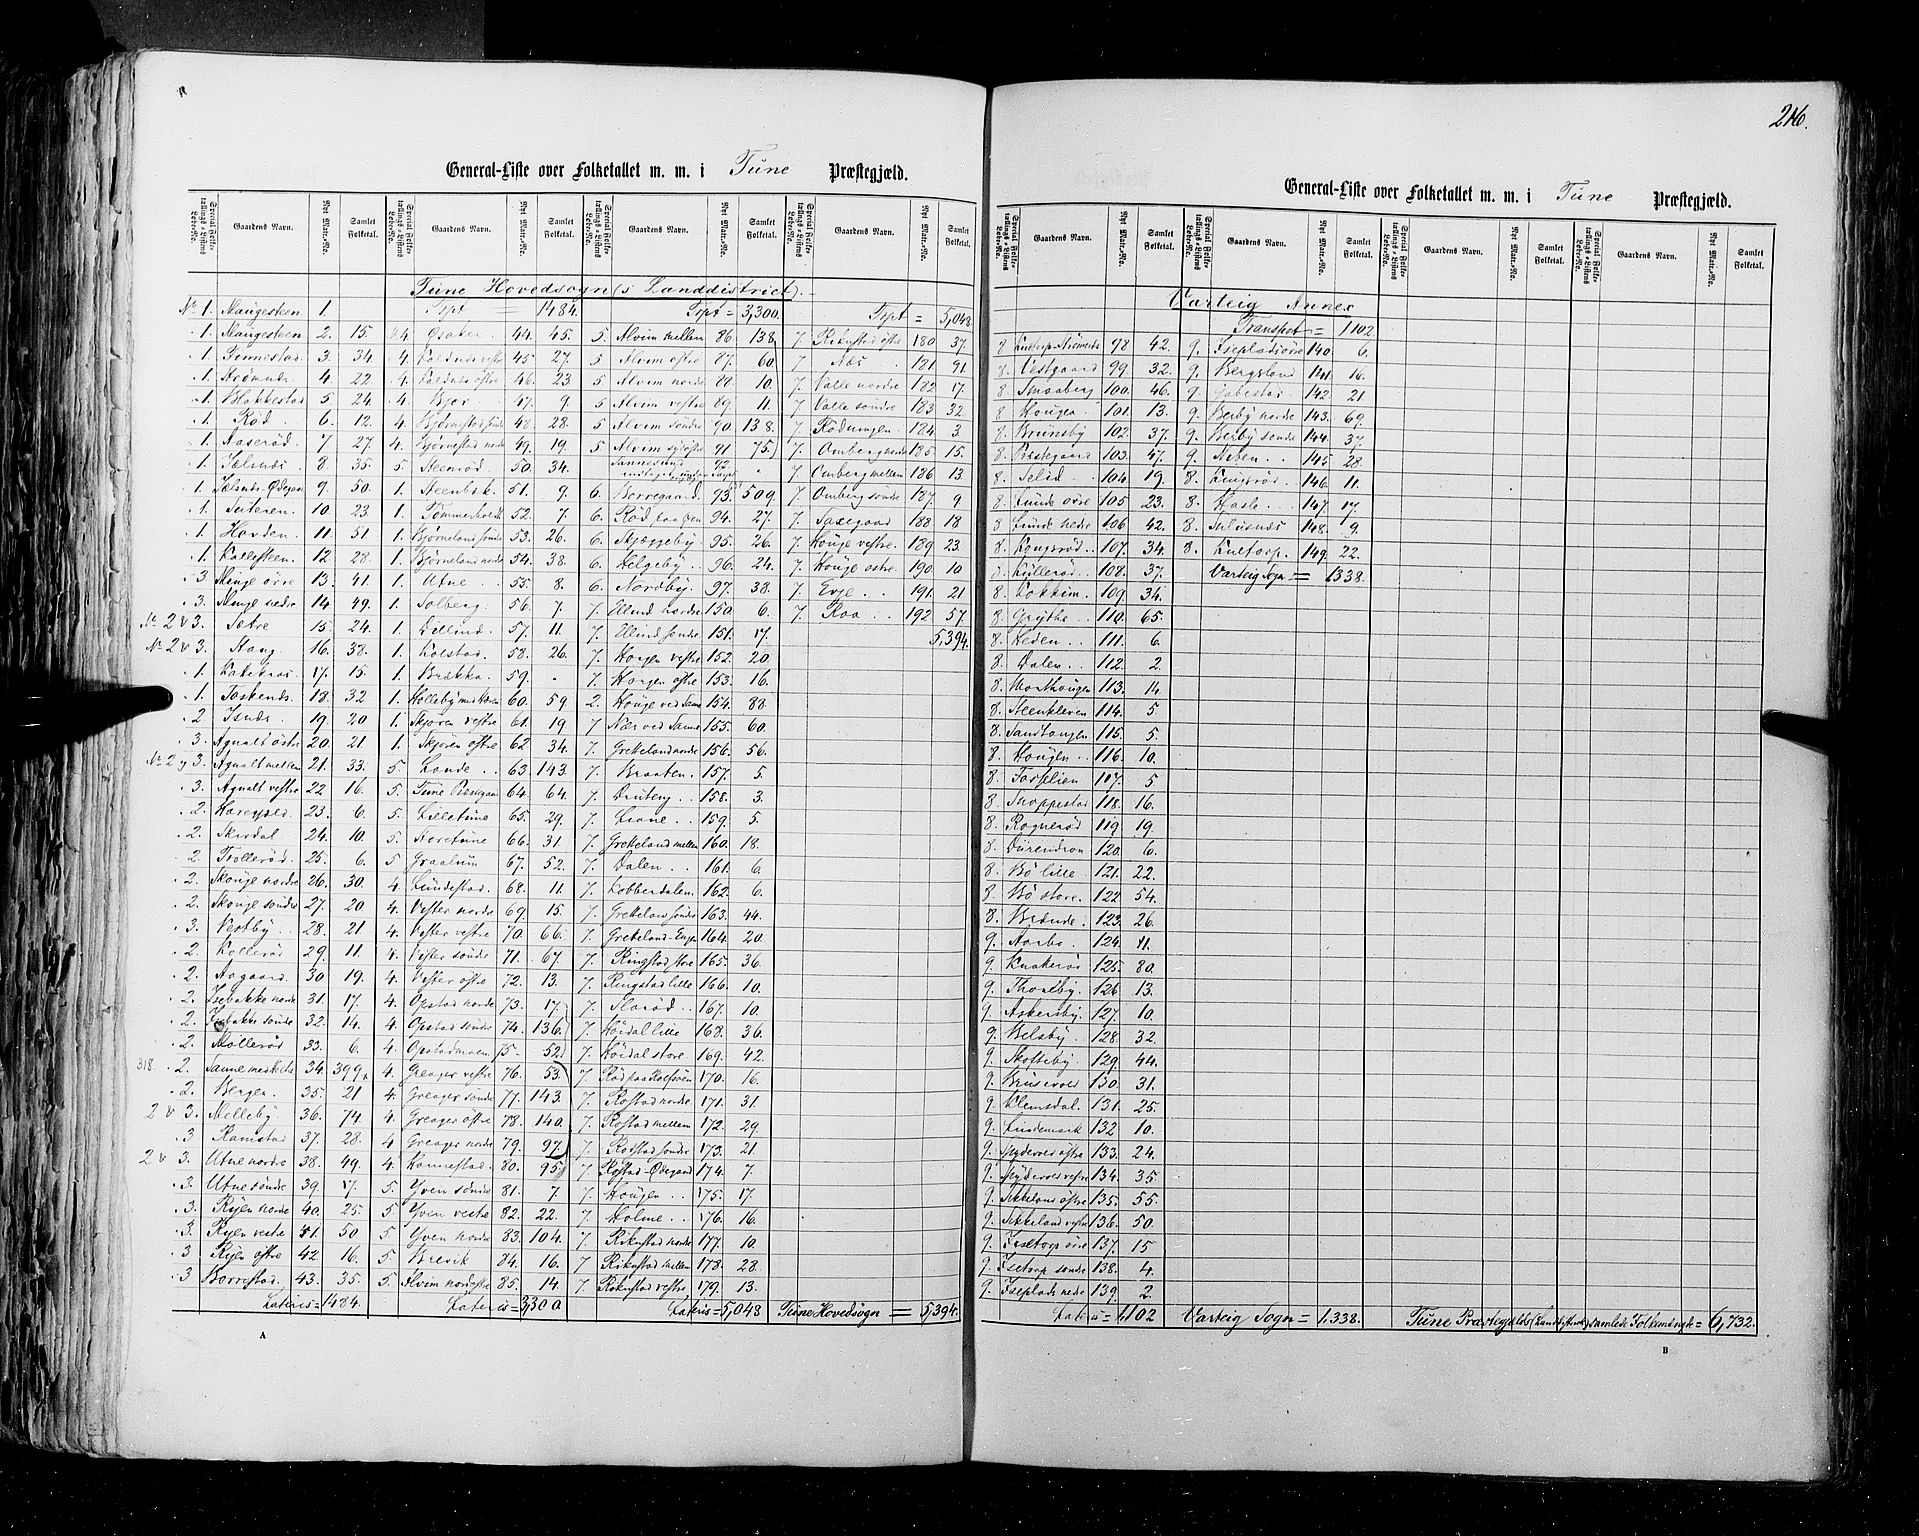 216.
General-Liste over Folketallet m. m. i Tune Præstegjæld.
Special Folketællings-Listens Løbe-No. Gaardens Navn. Nyt Matr.-No. Samlet Folketal.
Tune Hovedsogn (s Landdistrict).
No 1. Maugesteen 1.
1. Maugesteen 2. 15.
1. Tennestad 3. 34
1. Strømnes 4. 22
1. Blakkestad 5 24.
1. Rød 6. 12.
1. Aaserød 7. 27
1. Jelsnæs 8. 35.
1. Jelsnæs Ødegaard 9. 50.
1. Tuteren 10. 23
1. Harden 11. 51
1. Kallesteen 12 28.
3 Minge øvre 13. 41.
3. Minge nedre 14 49.
No 2 & 3. Sætre 15 24.
No 2 & 3. Haug 16. 38.
1. 17. 15.
1. Toskenæs 18. 32
2 Isnæs 19. 20
3. Agnalt østre 20. 21.
No 2 & 3. Agnalt mellem 21. 33.
3. Agnalt vestre 22 16.
2. 23. 6.
2. Skjedal 24. 10
2. Trollerød 25. 6.
2. Skouge nordre 26. 30.
2. Skouge søndre 27. 20.
3. Vestby 28. 21
2. Kollerød 29. 11.
2. Aagaard 30 19.
2. Isebakke nordre 31. 17.
2. Isebakke søndre 32. 14.
2. Mollerød 33. 6.
318. 2. Sanne 34 399
2. Bergen 35. 21
2 & 3. Melleby 36. 74.
3 Ramstad 37. 28.
2 & 3. Utne nordre 38. 49.
3. Utne søndre 39. 17.
3. Ryen nordre 40. 25
3. Ryen vestre 41. 50
3 Ryen østre 42. 16.
3 Borrestad 43. 35.
Lateris = 1484.
Trpt = 1484.
4. Osaker 44. 45.
4. Kalnæs vestre 45. 27.
4. Kalnæs østre 46. 23.
4. Bjor 47. 9
4. Bjørnestad søndre 48. 28.
4. Bjørnestad nordre 49. 19.
5. Steenrød 50. 34.
1. Steenbek 51. 9.
1. Tømmerholt 52. 7.
1. Bjørneland søndre 53. 26.
1. Bjørneland nordre 54. 38.
1. Utne 55. 8.
1. Solberg 56. 7.
1. Dillind 57. 11.
1. Kolstad 58. 26.
1. Brækka 59. -
1. Holleby 60. 59
1. Skjøren vestre 61. 19
1. Skjøren østre 62 34.
5. Lande 63 143.
5. Tune Præstegaard 64. 64.
5. Lilletune 65. 29.
5. Storetune 66. 31.
5 Graalum 67. 52.
4. Lundestad 68. 11.
4. Vister nordre 69. 15.
4. Vister vestre 70. 66.
4. Vister søndre 71. 67.
4. Vister østre 72. 13.
4. Opstad nordre 73. 17.
4. Opstad søndre 74. 136.
4. Opstadmoen 75. 52.
4. Greager vestre 76. 53.
4. Greager søndre 77. 143.
4. Greager østre 78. 140.
4 Greager nordre 79. 97.
4. Hannestad 80. 95.
5. Yven søndre 81. 7.
5. Yven vestre 82. 22.
5 Yven nordre 83. 104.
5 Brevik 84. 16.
5. Alvim nordøstre 85. 14.
Lateris = 3,300
Trpt = 3,300.
5. Alvim mellem 86 138.
5 Alvim østre 87. 60
5 Alvim nordre 88 10.
5 Alvim vestre 89. 11.
5. Alvim søndre 90. 138.
5. Alvim sydøstre 91 75.
Sannesund 92
6. Borregaard 93. 509.
6. Rød paa Øen 94. 27.
6. Skjeggeby 95. 26.
6. Helgeby 96. 24.
6. Nordby 97. 38.
7. Ellind nordre 150. 6.
7. Ellind søndre 151. 17.
7. Horgen vestre 152. 20.
7. Horgen østre 153. 16.
2. Houge ved Sanne 154. 88.
7 Nær ved Sanne 155. 60.
7. Grekeland nordre 156. 56.
7. Braaten 157. 5.
7. Dauberg 158. 3.
7. Liane 159. 5.
7. Grekeland mellem 160. 18.
7. Dalen 161. 6.
7. Kobberdalen 162. 6.
7. Grekeland søndre 163. 44.
7. Grekeland-Engen 164. 20.
7. Ringstad store 165. 36.
7. Ringstad lille 166. 10.
7. Florød 167. 10.
7. Høidal lille 168. 36.
7. Høidal store 169. 42.
7. Rød paa Rolfsøen 170. 16.
7. Rostad nordre 171. 31.
7. Rostad mellem 172. 29.
7. Rostad søndre 173. 21.
7. Rostad-Ødegaard 174. 7.
7. Hougen 175. 17.
7 Holme 176. 16.
7. Rikustad nordre 177. 10.
7 Rikustad mellem 178. 28.
7. Rikustad vestre 179. 13.
Lateris = 5,048
Trpt = 5,048.
7. Rikustad østre 180 37.
7 Næs 181 91.
7. Valle nordre 182 17.
7 Valle søndre 183 32.
7. Rødningen 184 3.
7. Omberg nordre 185 15.
7 Omberg mellem 186 13.
7. Omberg søndre 187 9
7. Saxegaard 188 18
7. Houge vestre 189 23.
7. Houge østre 190 10
7. Evje 191. 21
7. Roa 192 57.
5,394.
Tune Hovedsogn = 5,394.
A
General-Liste over Folketallet m. m. i Tune Præstegjæld.
Special Folketællings-Listens Løbe-No. Gaardens Navn. Nyt Matr.-No. Samlet Folketal.
Varteig Annex
8. 98 42.
8. Vestgaard 99 32.
8. Smaaberg 100. 46.
8 Hougen 101. 13.
8. Brunsby 102. 37.
8. Præstegaard 103. 47.
8. Selid 104. 19.
8. Lunde øvre 105 23.
8. Lunde nedre 106 42.
8. Kongsrød 107. 34.
8. Kyllerød 108. 37.
8. 109. 34.
8. Grythe 110. 65.
8. Heden 111. 6.
8. Dalen 112. 2.
8. Morthougen 113. 14.
8. Steenkleven 114. 5
8. Sandtangen 115. 5.
8. Hougen 116. 10.
8. 117. 5
8. Snoppestad 118. 16.
8. Rognerød 119 19.
8. 120. 6.
8. Bø lille 121. 22.
8 Bø store 122 54.
8. Brænde 123. 26.
9. Aarbo 124. 11.
9. Knakerød 125. 80.
9. Thoneby 126. 13.
9. Askersby 127. 10.
9. Belsby 128. 32.
9. Skofteby 129. 44.
9. 130. 31.
9. Klemsdal 131. 25.
9. Lindemark 132 10.
9. 133. 24.
9. 134. 35.
9. 135. 55.
9. 136. 50.
9. Isetorp øvre 137. 15
9. Isetorp søndre 138. 4.
9. Iseplads nedre 139. 2.
Lateris = 1102
Transport = 1102.
9. Iseplads øvre 140. 6.
9. Bergsland 141. 16.
9. Gabestad 142. 21
9. Berby nordre 143. 69.
9. Berby søndre 144. 37.
9. Neben 145 28.
8. Kongsrød 146 11.
8. Hasle 147. 17.
8. 148. 9.
8. Kultorp 149. 22.
Varteig Sogn = 1338.
Varteig Sogn = 1,338.
Tune Præstegjelds (Landdistrict) samlede Folkemængde = 6,732.
B